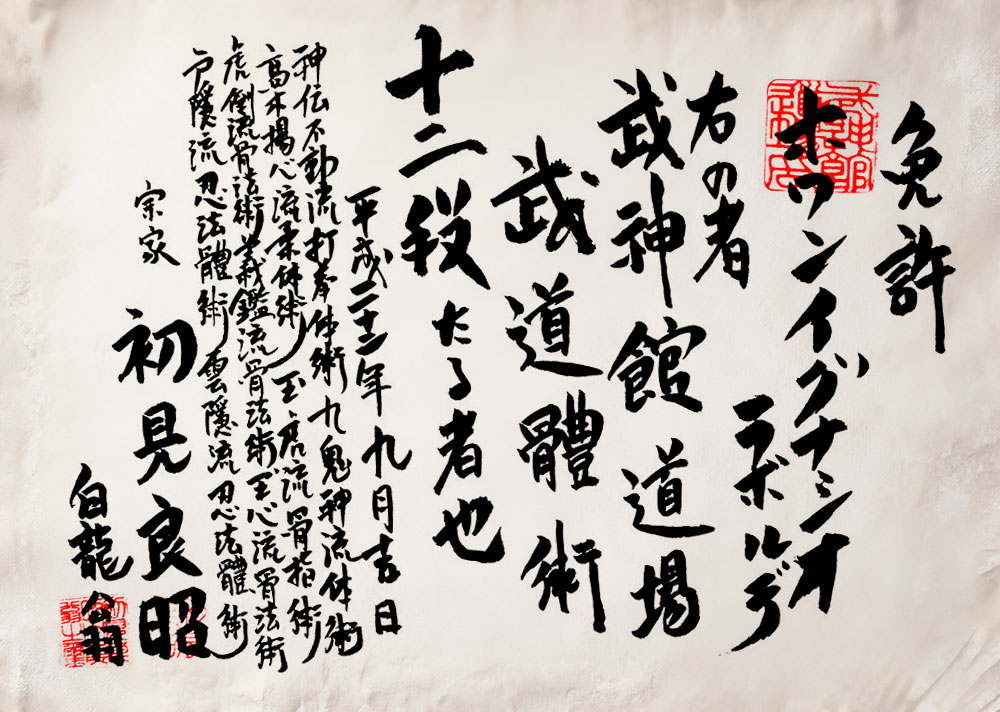 免許
ホワンイグナシオ
ラボルデ
右の者
武神館道場
武道體術
十二段たる者也
平成二十二年九月吉日
神伝不動流打拳体術九鬼神流体術
高木揚心流柔体術玉虎流骨指術
虎倒流骨法術義鑑流骨法術玉心流骨法術
戸隠流忍法體術雲隠流忍法體術
宗家
初見良昭
白龍翁